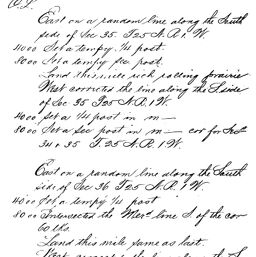 East on a random line along the South
side of Sec 35. T25 N. R. 1. W.
4000 Set a tempy 1/4 post.
8000 Set a tempy sec post.
Land this mile rich rolling prairie
West corrected the line along the S side
of Sec 35 T25 N. R. 1 W.
4000 set a 1/4 post in m—
8000 Set a sec post in m— cor for Sect
34 & 35 T. 25 N. R. 1 W.
East on a random line along the South
side of Sec 36 T25 N. R. 1. W.
4000 Set a tempy 1/4 post
8000 Intersected the Merd line S of the cor
60 lks.
Land this mile same as last.